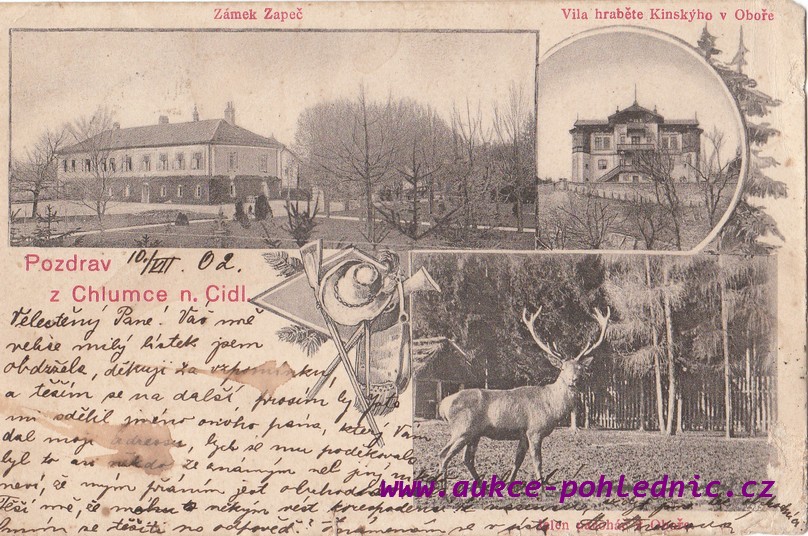 Zámek Zapeč
Vila hraběte Kinskýho v Oboře
Pozdrav
z Chlumce n. Cidl.
10/VII. 02.
Velectěný Pane! Váš mě
velice milý lístek jsem
obdržela, děkuji za vzpomínku
a těším se na další, prosím by jste
mi sdělil jméno onoho pána, který Vám
dal moji adressu, bych se mu poděkovala
byl to asi někdo ze známých neb jiný
není, že mým přáním jest
Těší mě, že mohu s někým vést
se těšiti na odpověď!
www.aukce-pohlednic.cz
Jelen v Oboře